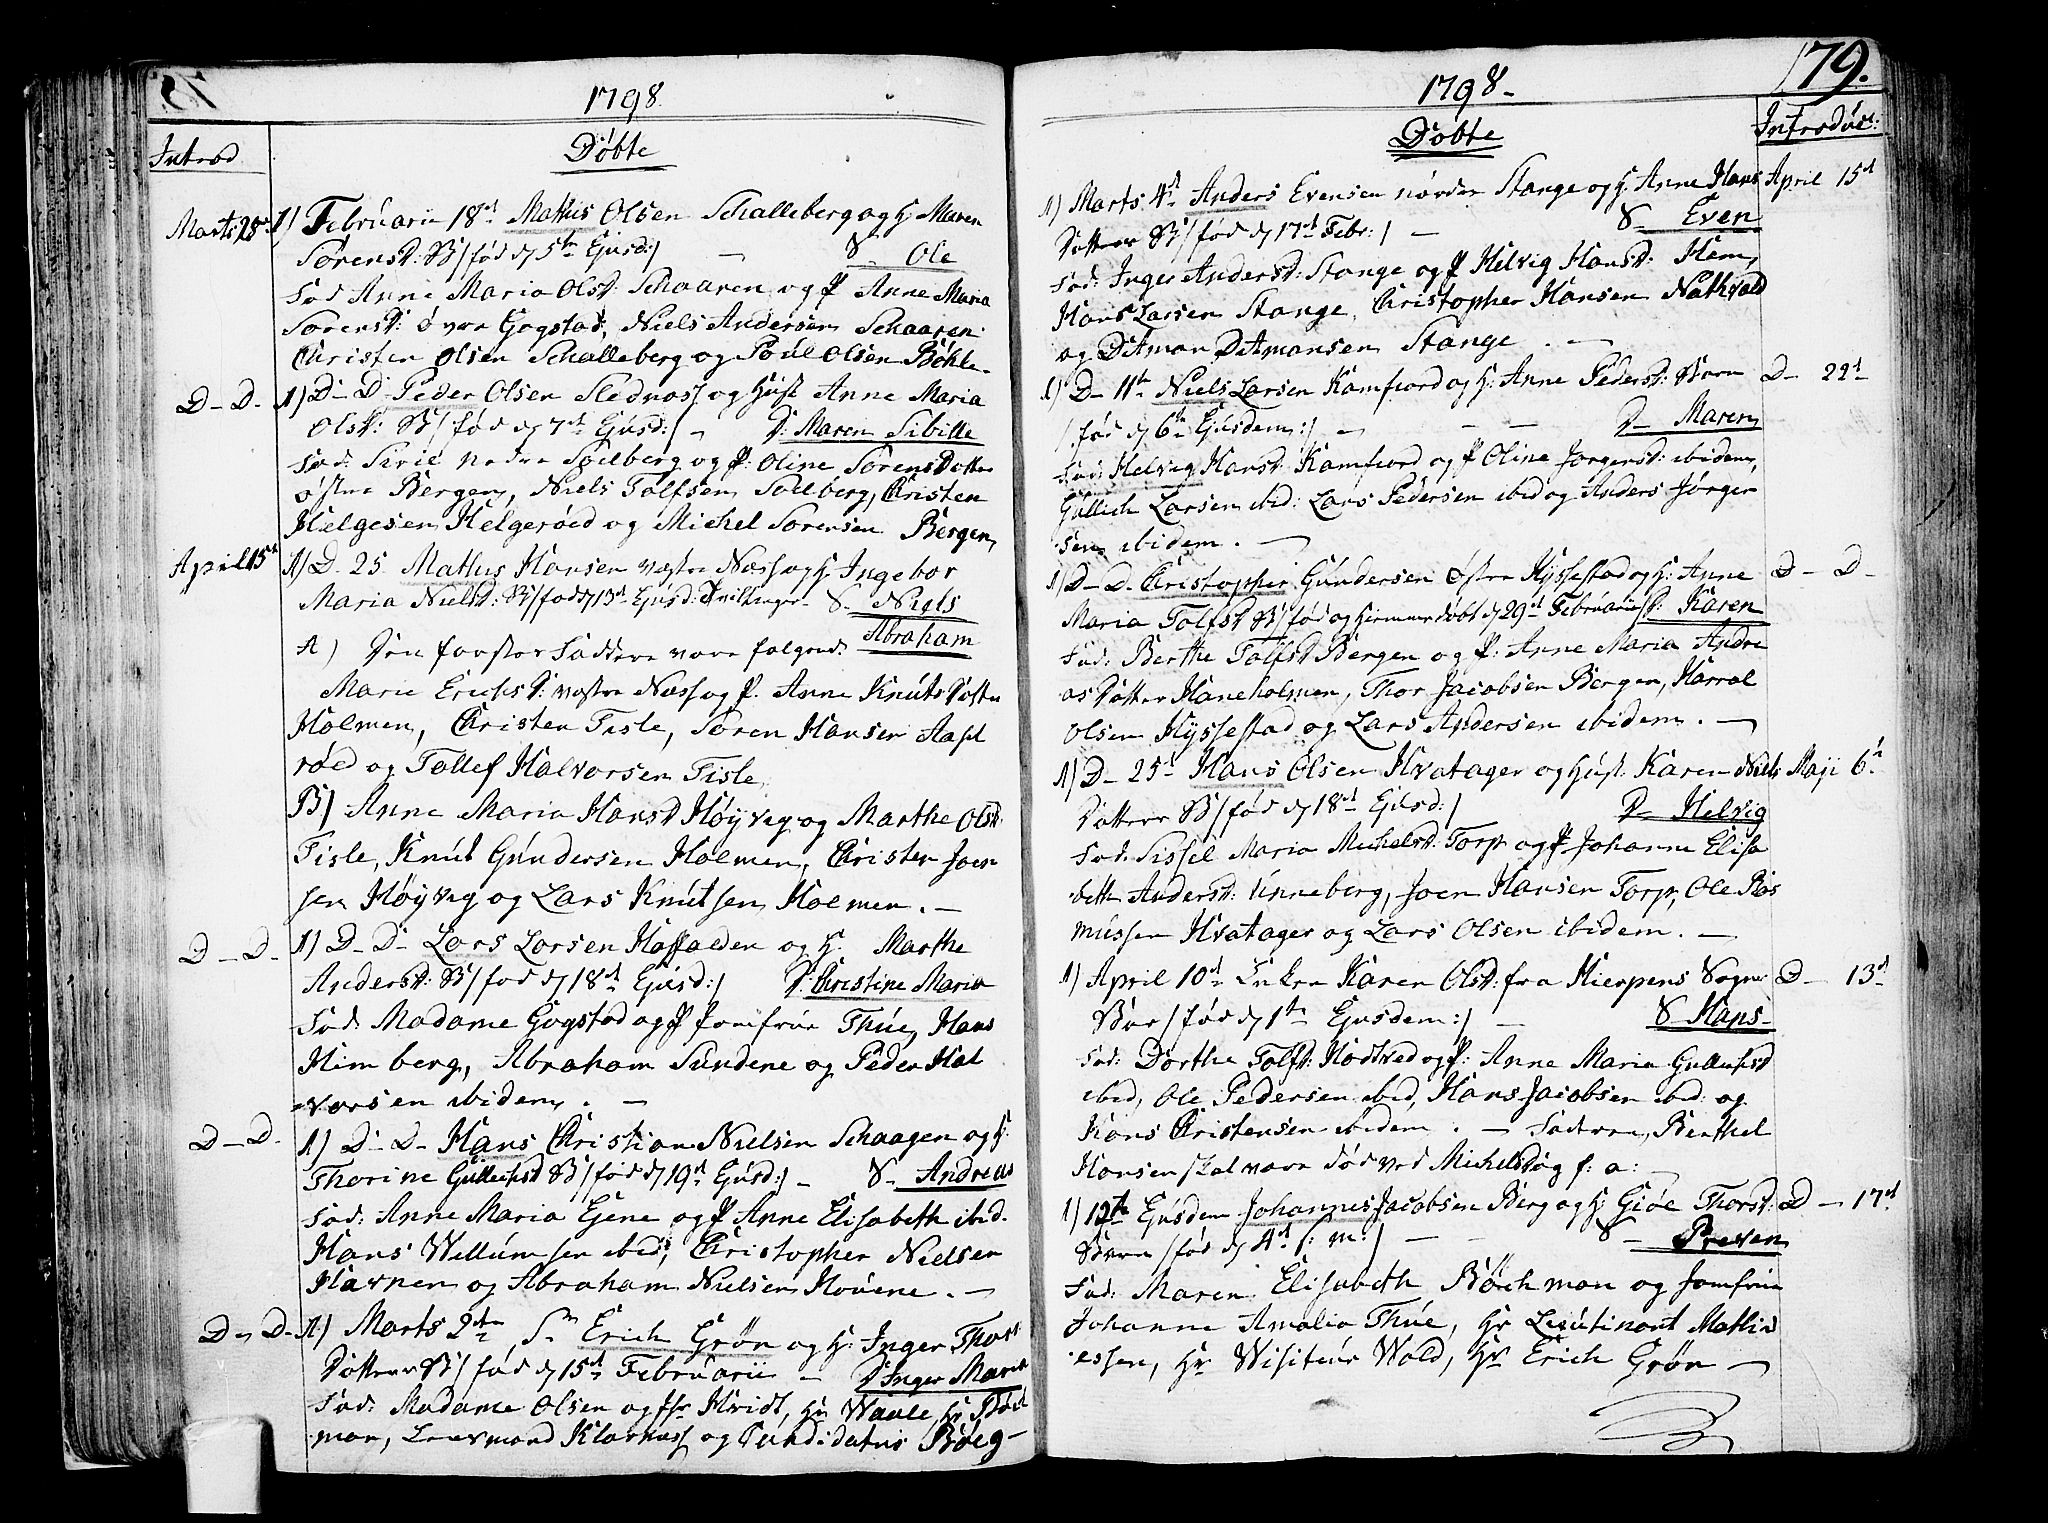 1798.
Introd
Döbte
Marts 25. 1) Februarii 18d Mathis Olsen Schalleberg og H: Maren
Sörensd: B/ fød d 5te Ejusd:/ - S. Ole
Fad Anne Maria Olsd: Schaaren og P Anne Maria
Sorensd: øvre Gogstad, Niels Andersen Schaaren
Christen Olsen Schalleberg og Poul Olsen Böhle.
D - D. 1) D- D Peder Olsen Slednoss og Hust Anne Maria
Olsd: B/ fød d 7de Ejusd:/ - D: Maren Sibille
Fad: Sirie nedre Soelberg og P: Oline SorensDotter
østre Bergen, Niels Tolfsen Solberg, Christen
Helgesen Helgeröed og Michel Sorensen Bergen,
April 15d 1) D. 25. Mathis Hansen vestre Næss og H: Ingebor
Maria Nielsd: B/ fød d 13d Ejusd: Tvillinger- S. Niels
Abraham
A) Den førstes Faddere vare følgend:
Marie Erichsd: vestre Næss og P. Anne KnútsDotter
Holmen, Christen Tisle, Soren Hansen Aasl
röed og Tollef Halvorsen Tisle
B) Anne Maria Hansd Höyveg og Marthe Olsd:
Tisle, Knút Gúndersen Holmen, Christen Joen
sen Höyveg og Lars Knútsen Holmen. -
D - D. 1) D- D- Lars Larsen Haffalden og H. Marthe
Andersd: B/ fød d 18d Ejusd:/ D: Christine Maria
Fad: Madame Gogstad og P Jomfrue Thúe, Hans
Himberg, Abraham Sundene og Peder Hal
vorsen ibidem. -
D - D. 1) D- D- Hans Christian Nielsen Schaagen og H:
Thorine Gullichsd B/ fød d 19d Ejusd:/ - S- Andreas
Fad: Anne Maria Ejene og P Anne Elisabeth ibid.
Hans Willúmsen ibid, Christopher Nielsen
Havnen og Abraham Nielsen Hovene. -
D - D- 1) Marts 2den Sr Erich Grön og H: Inger Thors
Dotters B/ fød d 15d Februarii - D Inger Maria
Fad: Madame Olsen og Hvidt, Hr Waale, Hr Böch
man, Lensmand Klavness og Böeg-
79.
1798.
Döbte
Introduc:
1) Marts 4d Anders Evensen nordre Stange og H: Anne Hans April 15d
Dotters B/ fød d 17d Febr:/ - S. Even
Fad: Inger Andersd: Stange og P Helvig Hansd: Hem,
Hans Larsen Stange, Christopher Hansen Nathvad
og Ditman Ditmansen Stange. -
1) D- 11te Niels Larsen Kamfiord og H: Anne Pedersd: Barn D- 22d
/fød d 6te Ejusdem:/ - - - D- Maren
Fad: Helvig Hansd: Kamfiord og P Oline Jorgensd: ibidem,
Gullich Larsen ibid: Lars Pedersen ibid og Anders Jörgen
sen ibidem. -
1) D- D. Christopher Gundersen østre Hyssestad og H: Anne D- D-
Maria Tolfsd B/ fød og hiemmedøbt d 29d Februarii/ D: Karen
Fad: Berthe Tolfsd Bergen og P: Anne Maria Andre
asDotter Haneholmen, Thor Jacobsen Bergen, Harral
Olsen Hyssestad og Lars Andersen ibidem. -
1) D- 25d Hans Olsen Hvatager og Hust. Karen Niels Maji 6d
Dotters B/ fød d 18d Ejusd:/ D- Helvig
Fad: Sissel Maria Michelsd: Torp og P Johanne Elisa
beth Andersd: Unneberg, Joen Hansen Torp, Ole Ras
mússen Hvatager og Lars Olsen ibidem. -
1) April 10d Enken Karen Olsd: fra Hierpens Sogn D- 13d
Bar/ fød d 1te Ejusdem:/ - S Hans-
Fad: Dorthe Tolfsd: Hodtved og P: Anne Maria Gullichsd
ibid, Ole Pedersen ibid, Hans Jacobsen ibid: og
Hans Christensen ibidem. - Faderen, Berthel
Hansen skal være død ved Michelsdag f: a: -
1) 12te Ejusdem Johannes Jacobsen Berg og H: Giöe Thorsd: D- 17d
Barn/ fød d 4d h: m:/ - - S- Preven
Fad: Maren Elisabeth Böchman og Jomfrue
Johanne Amalia Thúe, Hr Lieútinant Mathie
essen, Hr Wisiteúr Wold, Hr Erich Grön -